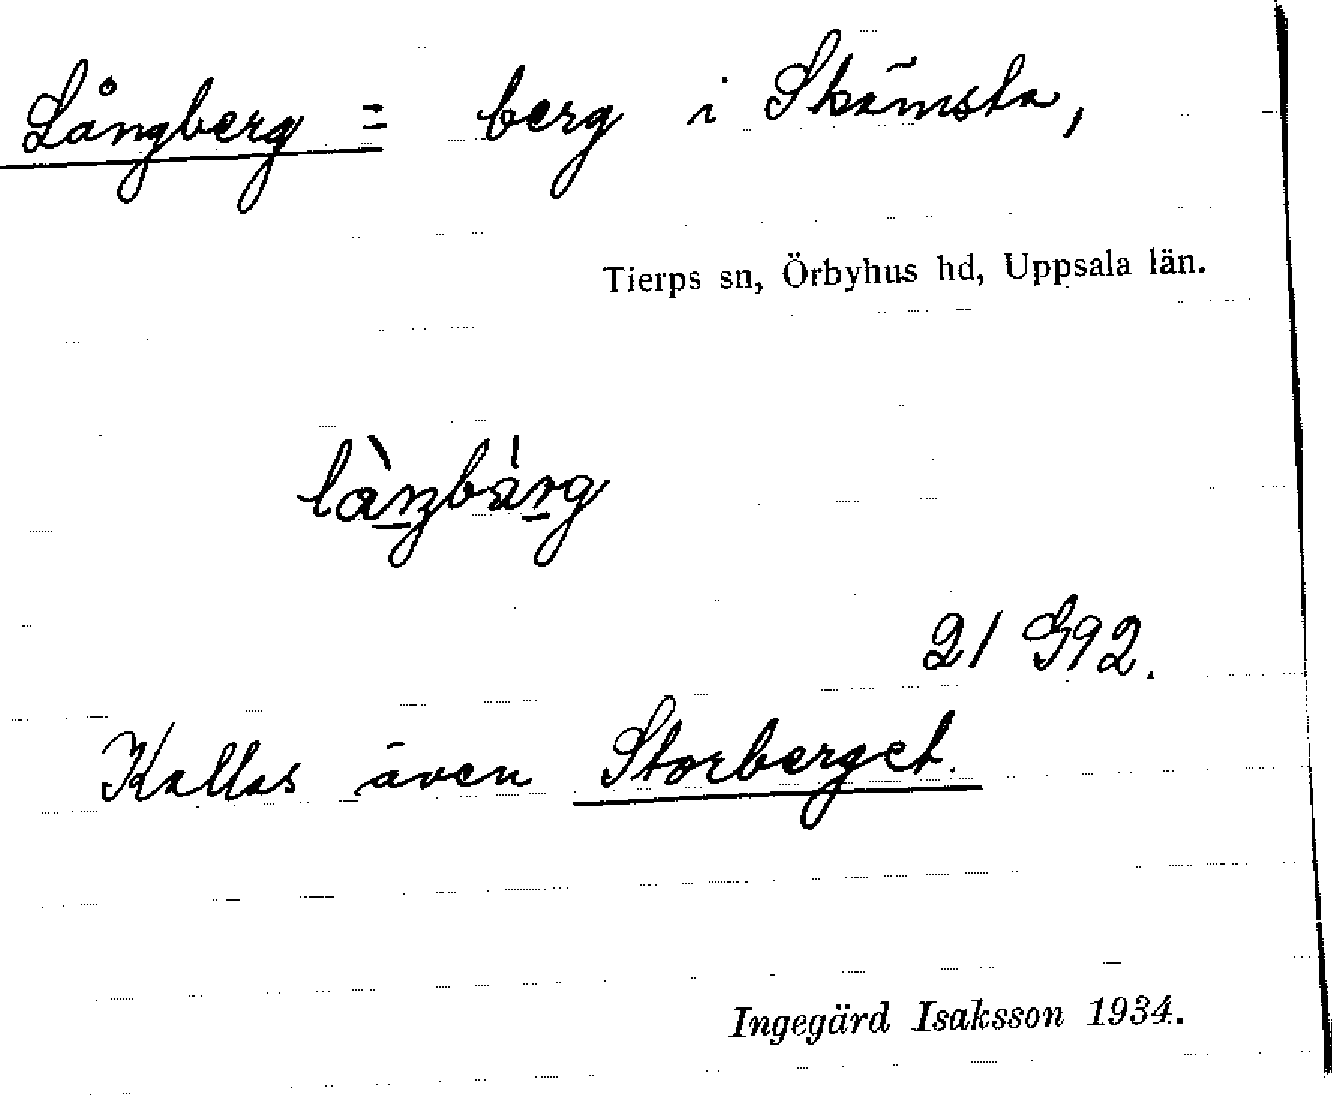 Långberg = berg i Skämsta,
Tierps sn, Örbyhus hd, Uppsala län.
21 G92.
Kallas även Storberget.
Ingegärd Isaksson 1934.